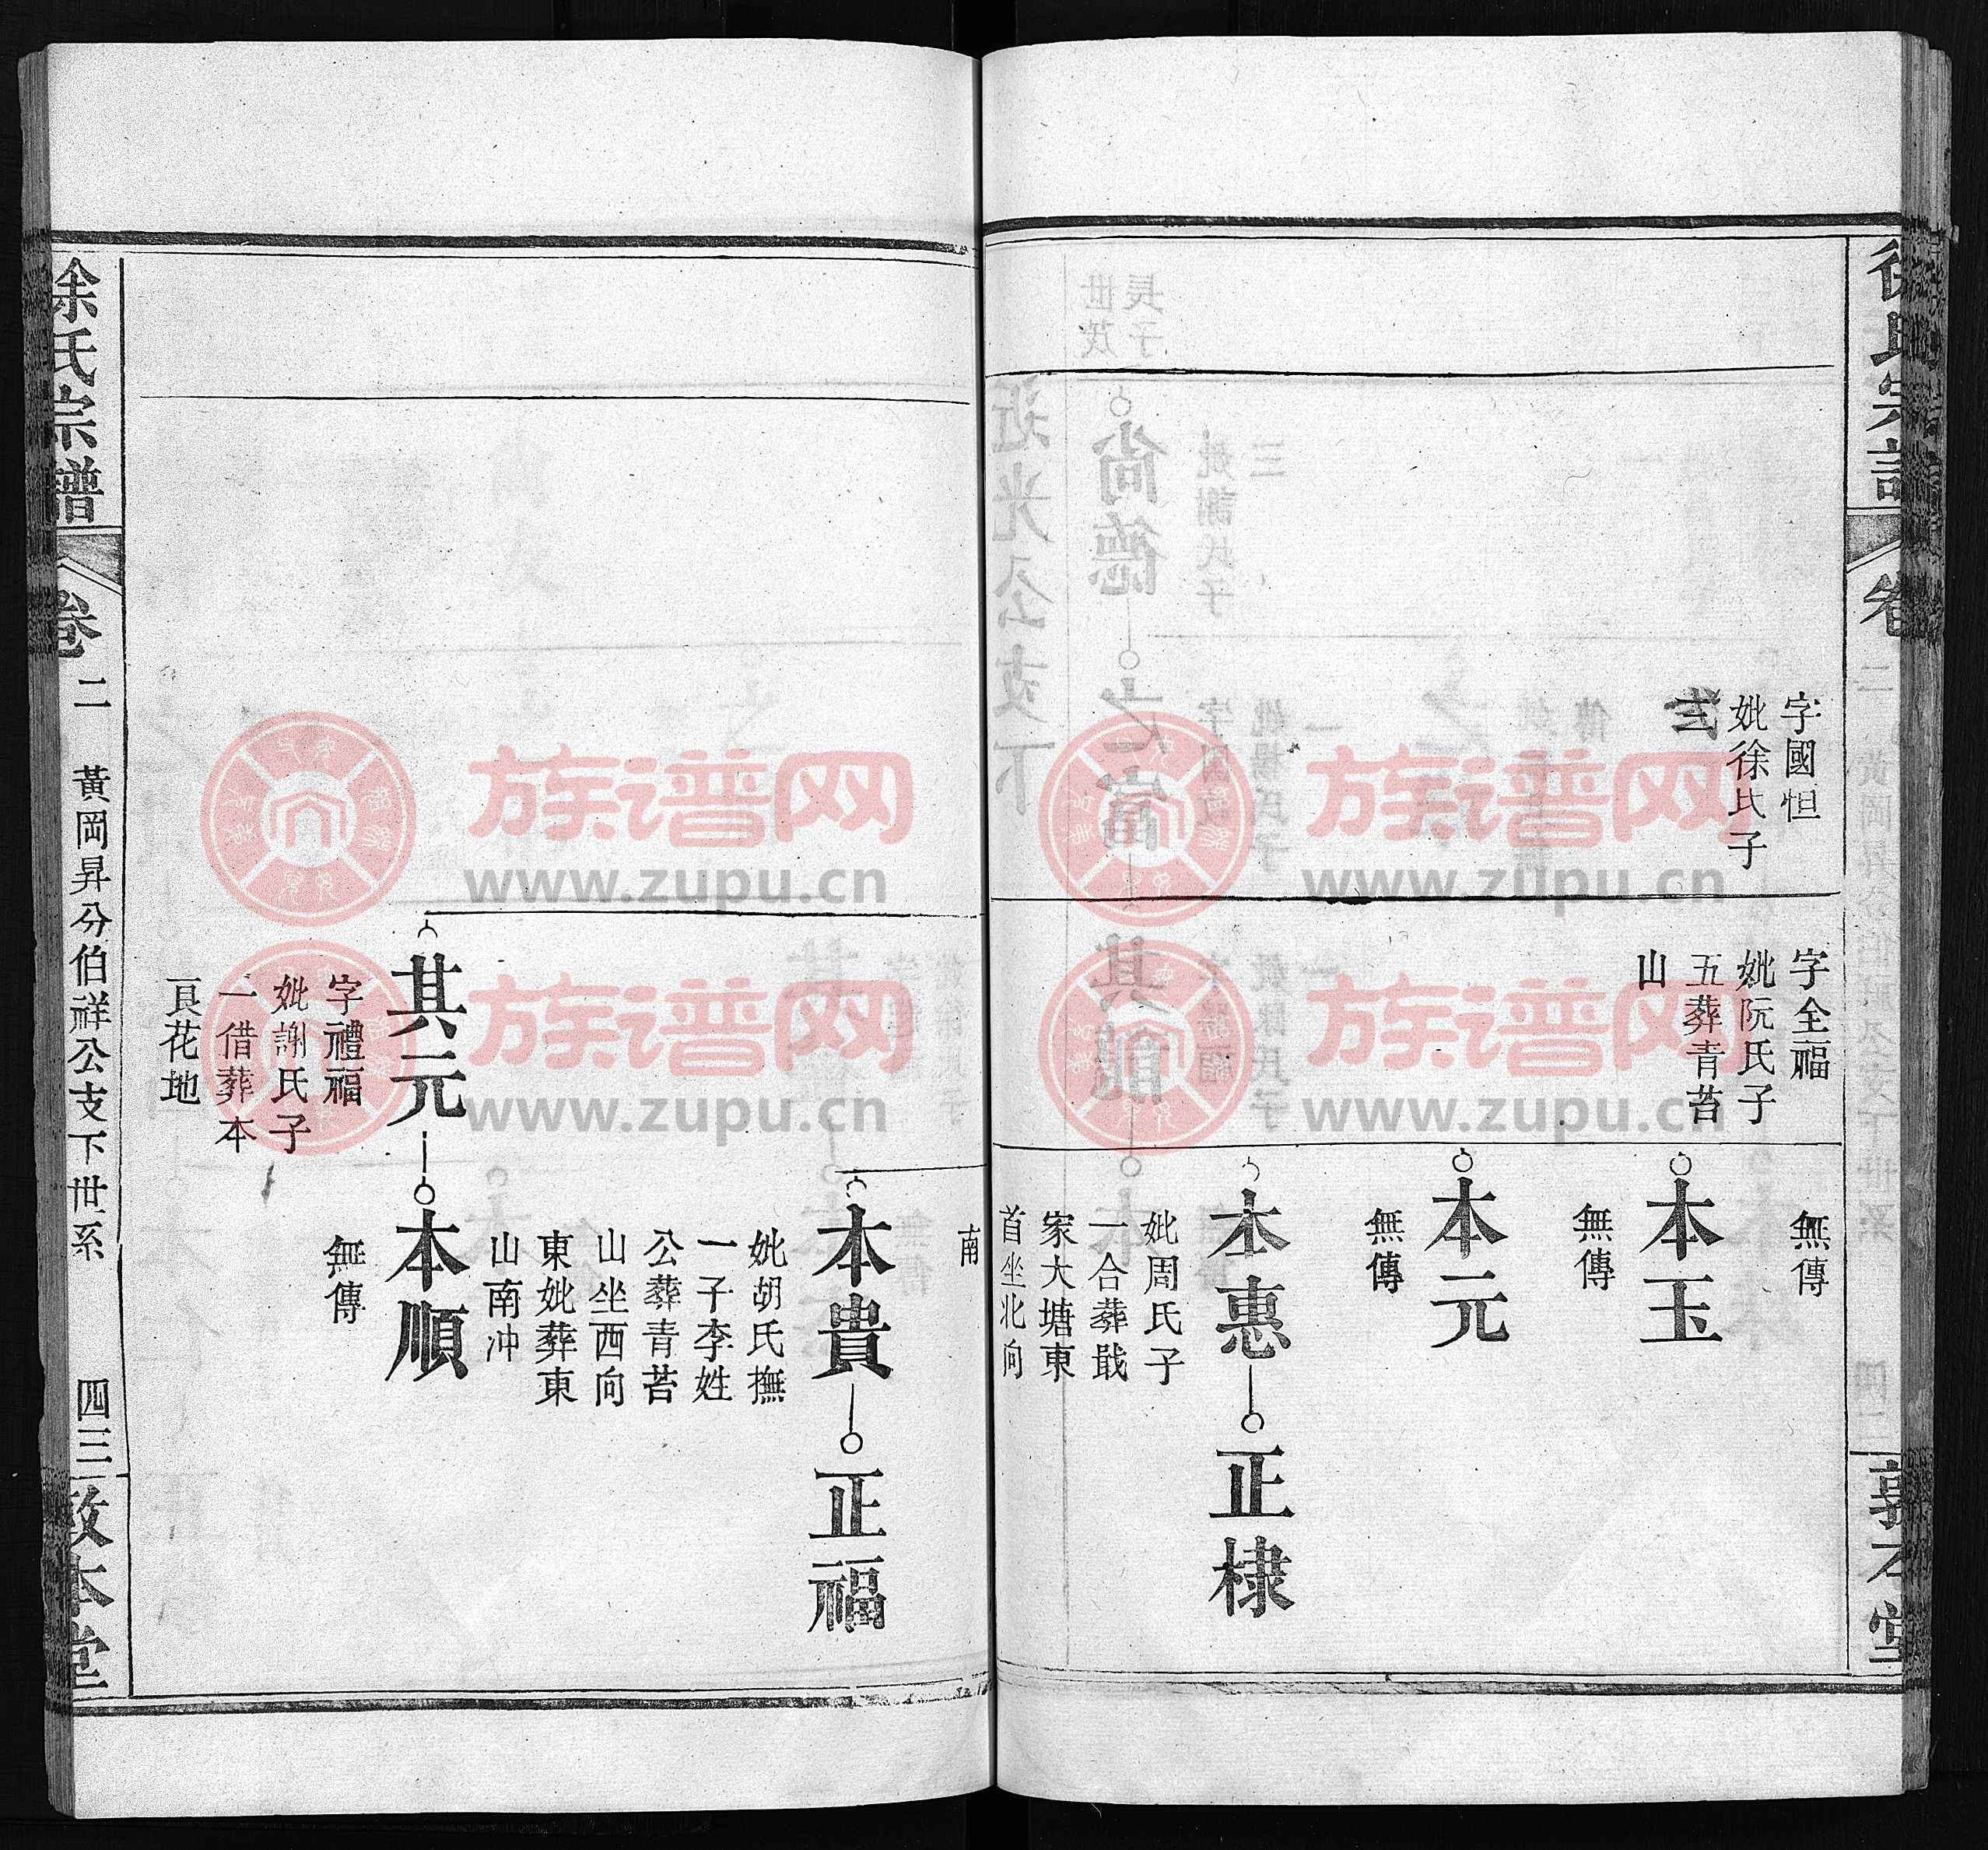 字國怛
妣徐氏子
字全福
妣阮氏子
五葬青苔
山
無傳
本玉
無傳
本元
無傳
本惠
正棣
妣周氏子
一合葬戢
家大塘東
首坐北向
南
本貴
正福
妣胡氏撫
一子李姓
公葬青苔
山坐西向
東妣葬東
山南冲
其元
本順
字禮福
妣謝氏子
一借葬本
艮花地
無傳
徐氏宗譜
卷二
黃岡昇分伯祥公支下世系
四三
敦本堂
族谱网
www.zupu.cn
族谱网
www.zupu.cn
族谱网
www.zupu.cn
族谱网
www.zupu.cn